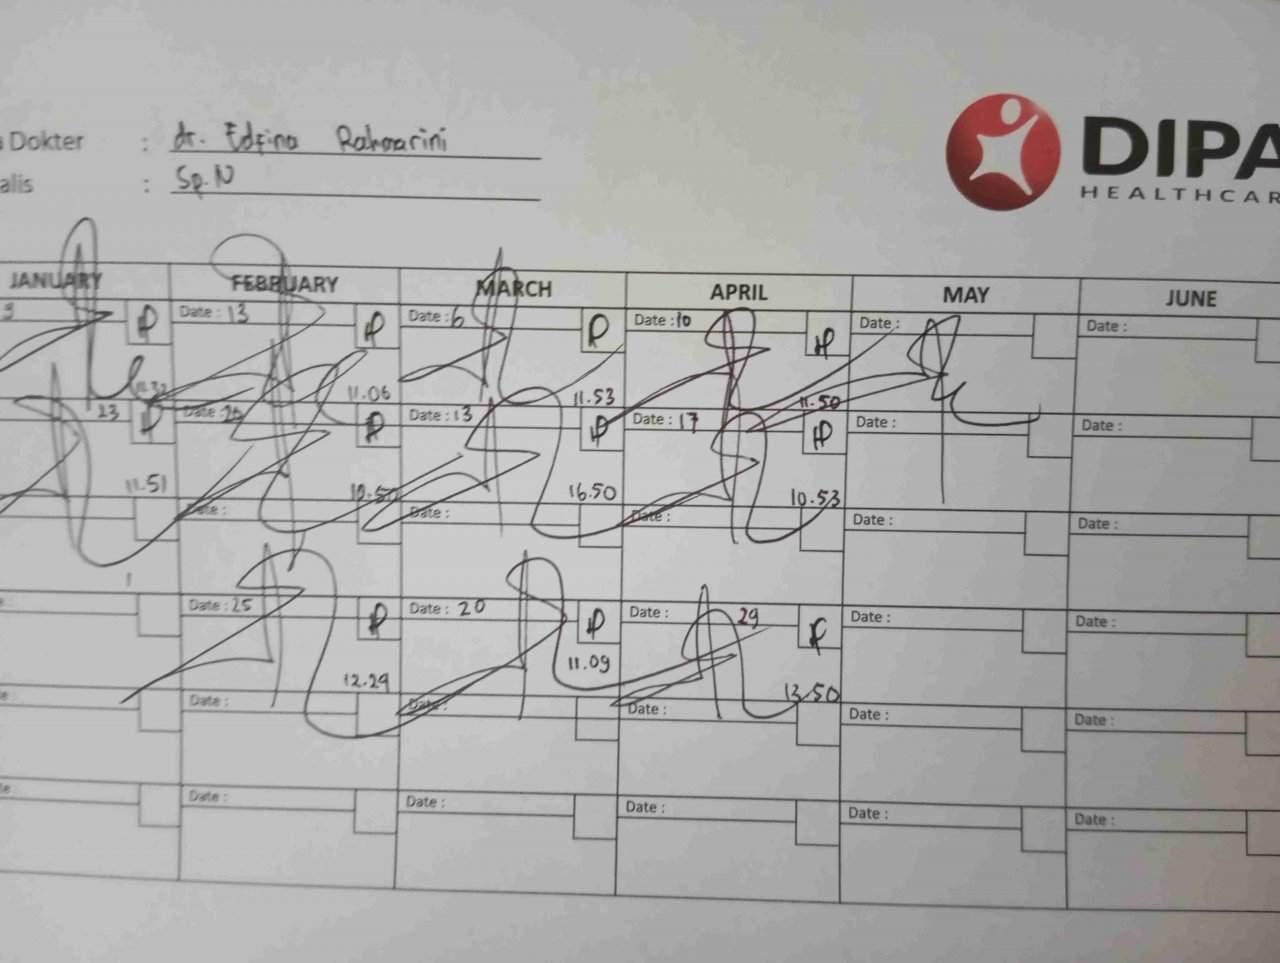 Dokter : dr. Edfina Rahmarini
alis : Sp.N
DIPA
HEALTHCAR
JANUARY FEBRUARY MARCH APRIL MAY JUNE
9 P Date : 13 P Date : 6 P Date : 10 P Date : Date :
11.32 11.06 11.53 11.50
23 P Date : P Date : 13 P Date : 17 P Date : Date :
11.51 10.50 16.50 10.53
Date : Date : Date : Date : Date :
e: Date : 25 P Date : 20 P Date : 29 P Date : Date :
12.29 11.09 13.50
e: Date : Date : Date : Date : Date :
e: Date : Date : Date : Date : Date :